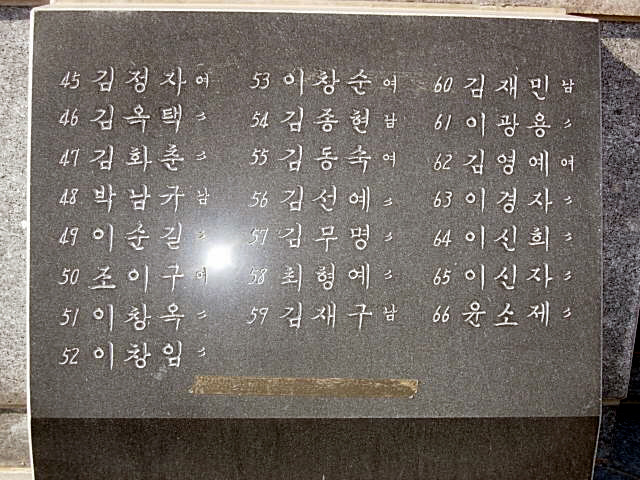 45 김정자 여
46 김옥택 〃
47 김화춘 〃
48. 박남규 남
49 이순길 〃
50 조이구 여
51 이창옥 〃
52 이창임 〃
53 이창순 여
54 김종현 남
55 김동숙 여
56 김선예 〃
57 김무명 〃
58 최형예 〃
59 김재구 남
60 김재민 남
61 이광용 〃
62 김영예 여
63 이경자 〃
64 이신희 〃
65 이신자 〃
66 윤소제 〃